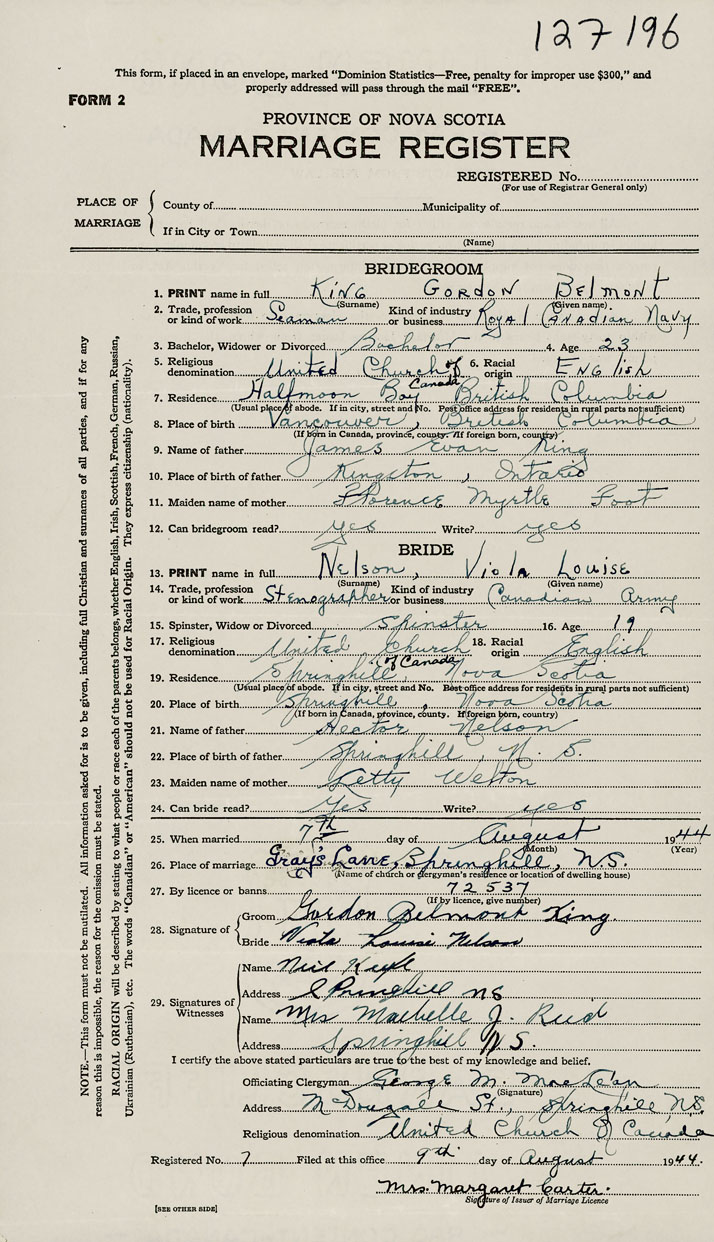 127 196
This form, if placed in an envelope, marked "Dominion Statistics—Free, penalty for improper use $300," and
properly addressed will pass through the mail "FREE".
FORM 2
PROVINCE OF NOVA SCOTIA
MARRIAGE REGISTER
REGISTERED No.
(For use of Registrar General only)
PLACE OF MARRIAGE
County of Municipality of
If in City or Town
(Name)
BRIDEGROOM
1. PRINT name in full KING GORDON BELMONT
(Surname) (Given name)
2. Trade, profession or kind of work Seaman Kind of industry or business Royal Canadian Navy
3. Bachelor, Widower or Divorced Bachelor 4. Age 23
5. Religious denomination United Church of Canada 6. Racial origin English
7. Residence Halfmoon Bay British Columbia
(Usual place of abode. If in city, street and No. Post office address for residents in rural parts not sufficient)
8. Place of birth Vancouver, British Columbia
(If born in Canada, province, county. If foreign born, country)
9. Name of father James Evan King
10. Place of birth of father Kingston, Ontario
11. Maiden name of mother Florence Myrtle Foot
12. Can bridegroom read? yes Write? yes
BRIDE
13. PRINT name in full Nelson, Viola Louise
(Surname) (Given name)
14. Trade, profession or kind of work Stenographer Kind of industry or business Canadian Army
15. Spinster, Widow or Divorced Spinster 16. Age 19
17. Religious denomination United Church of Canada 18. Racial origin English
19. Residence Springhill Nova Scotia
(Usual place of abode. If in city, street and No. Post office address for residents in rural parts not sufficient)
20. Place of birth Springhill, Nova Scotia
(If born in Canada, province, county. If foreign born, country)
21. Name of father Hector Nelson
22. Place of birth of father Springhill, N. S.
23. Maiden name of mother Letty Welton
24. Can bride read? Yes Write? yes
25. When married 7th day of August 1944
(Month) (Year)
26. Place of marriage Gray's Lane, Springhill, N.S.
(Name of church or clergyman's residence or location of dwelling house)
27. By licence or banns 72537
(If by licence, give number)
28. Signature of
Groom Gordon Belmont King.
Bride Viola Louise Nelson
29. Signatures of Witnesses
Name Neil
Address Springhill NS
Name Mrs J.
Address Springhill N.S.
I certify the above stated particulars are true to the best of my knowledge and belief.
Officiating Clergyman George M. MacLean
(Signature)
Address McDougall St., Springhill N.S.
Religious denomination United Church of Canada
Registered No. 7 Filed at this office 9th day of August 1944.
Mrs. Margaret Carter.
Signature of Issuer of Marriage Licence
[SEE OTHER SIDE]
NOTE.—This form must not be mutilated. All information asked for is to be given, including full Christian and surnames of all parties, and if for any
reason this is impossible, the reason for the omission must be stated.
RACIAL ORIGIN will be described by stating to what people or race each of the parents belongs, whether English, Irish, Scottish, French, German, Russian,
Ukrainian (Ruthenian), etc. The words "Canadian" or "American" should not be used for Racial Origin. They express citizenship (nationality).